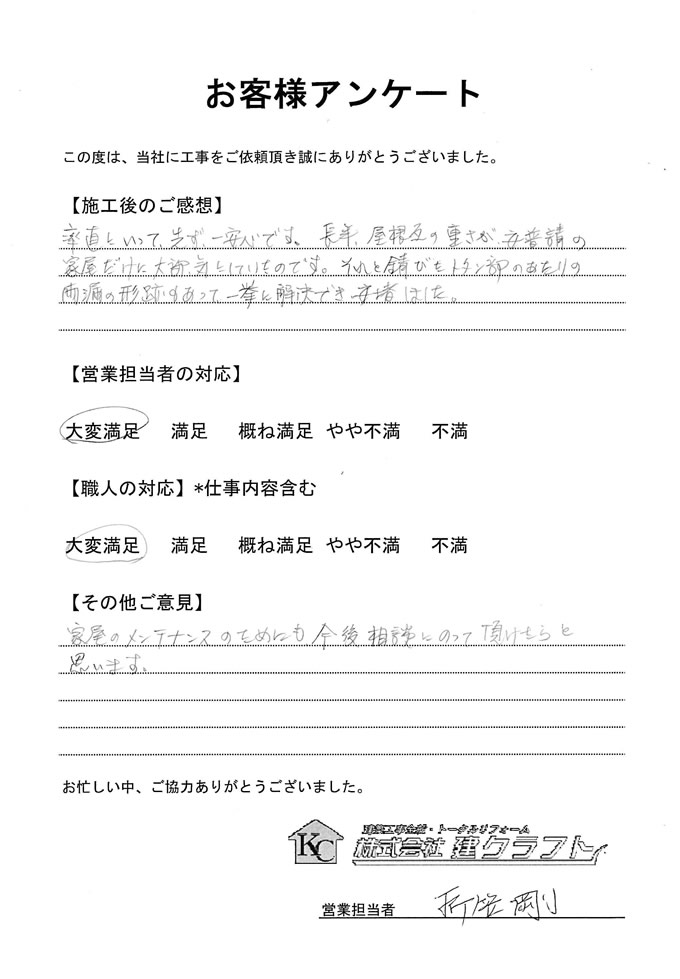 お客様アンケート
この度は、当社に工事をご依頼頂き誠にありがとうございました。
【施工後のご感想】
率直といって、先ず、一安心です。長年、屋根瓦の重さが、安普請の
家屋だけに大部気としていたものです。それと錆びたトタン部のあたりの
雨漏の形跡もあって一挙に解決でき安堵しました。
【営業担当者の対応】
大変満足 満足 概ね満足 やや不満 不満
【職人の対応】*仕事内容含む
大変満足 満足 概ね満足 やや不満 不満
【その他ご意見】
家屋のメンテナンスのためにも今後相談にのって頂けたらと
思います。
お忙しい中、ご協力ありがとうございました。
KC
建築工事全般・トータルリフォーム
株式会社 建クラフト
営業担当者 剛